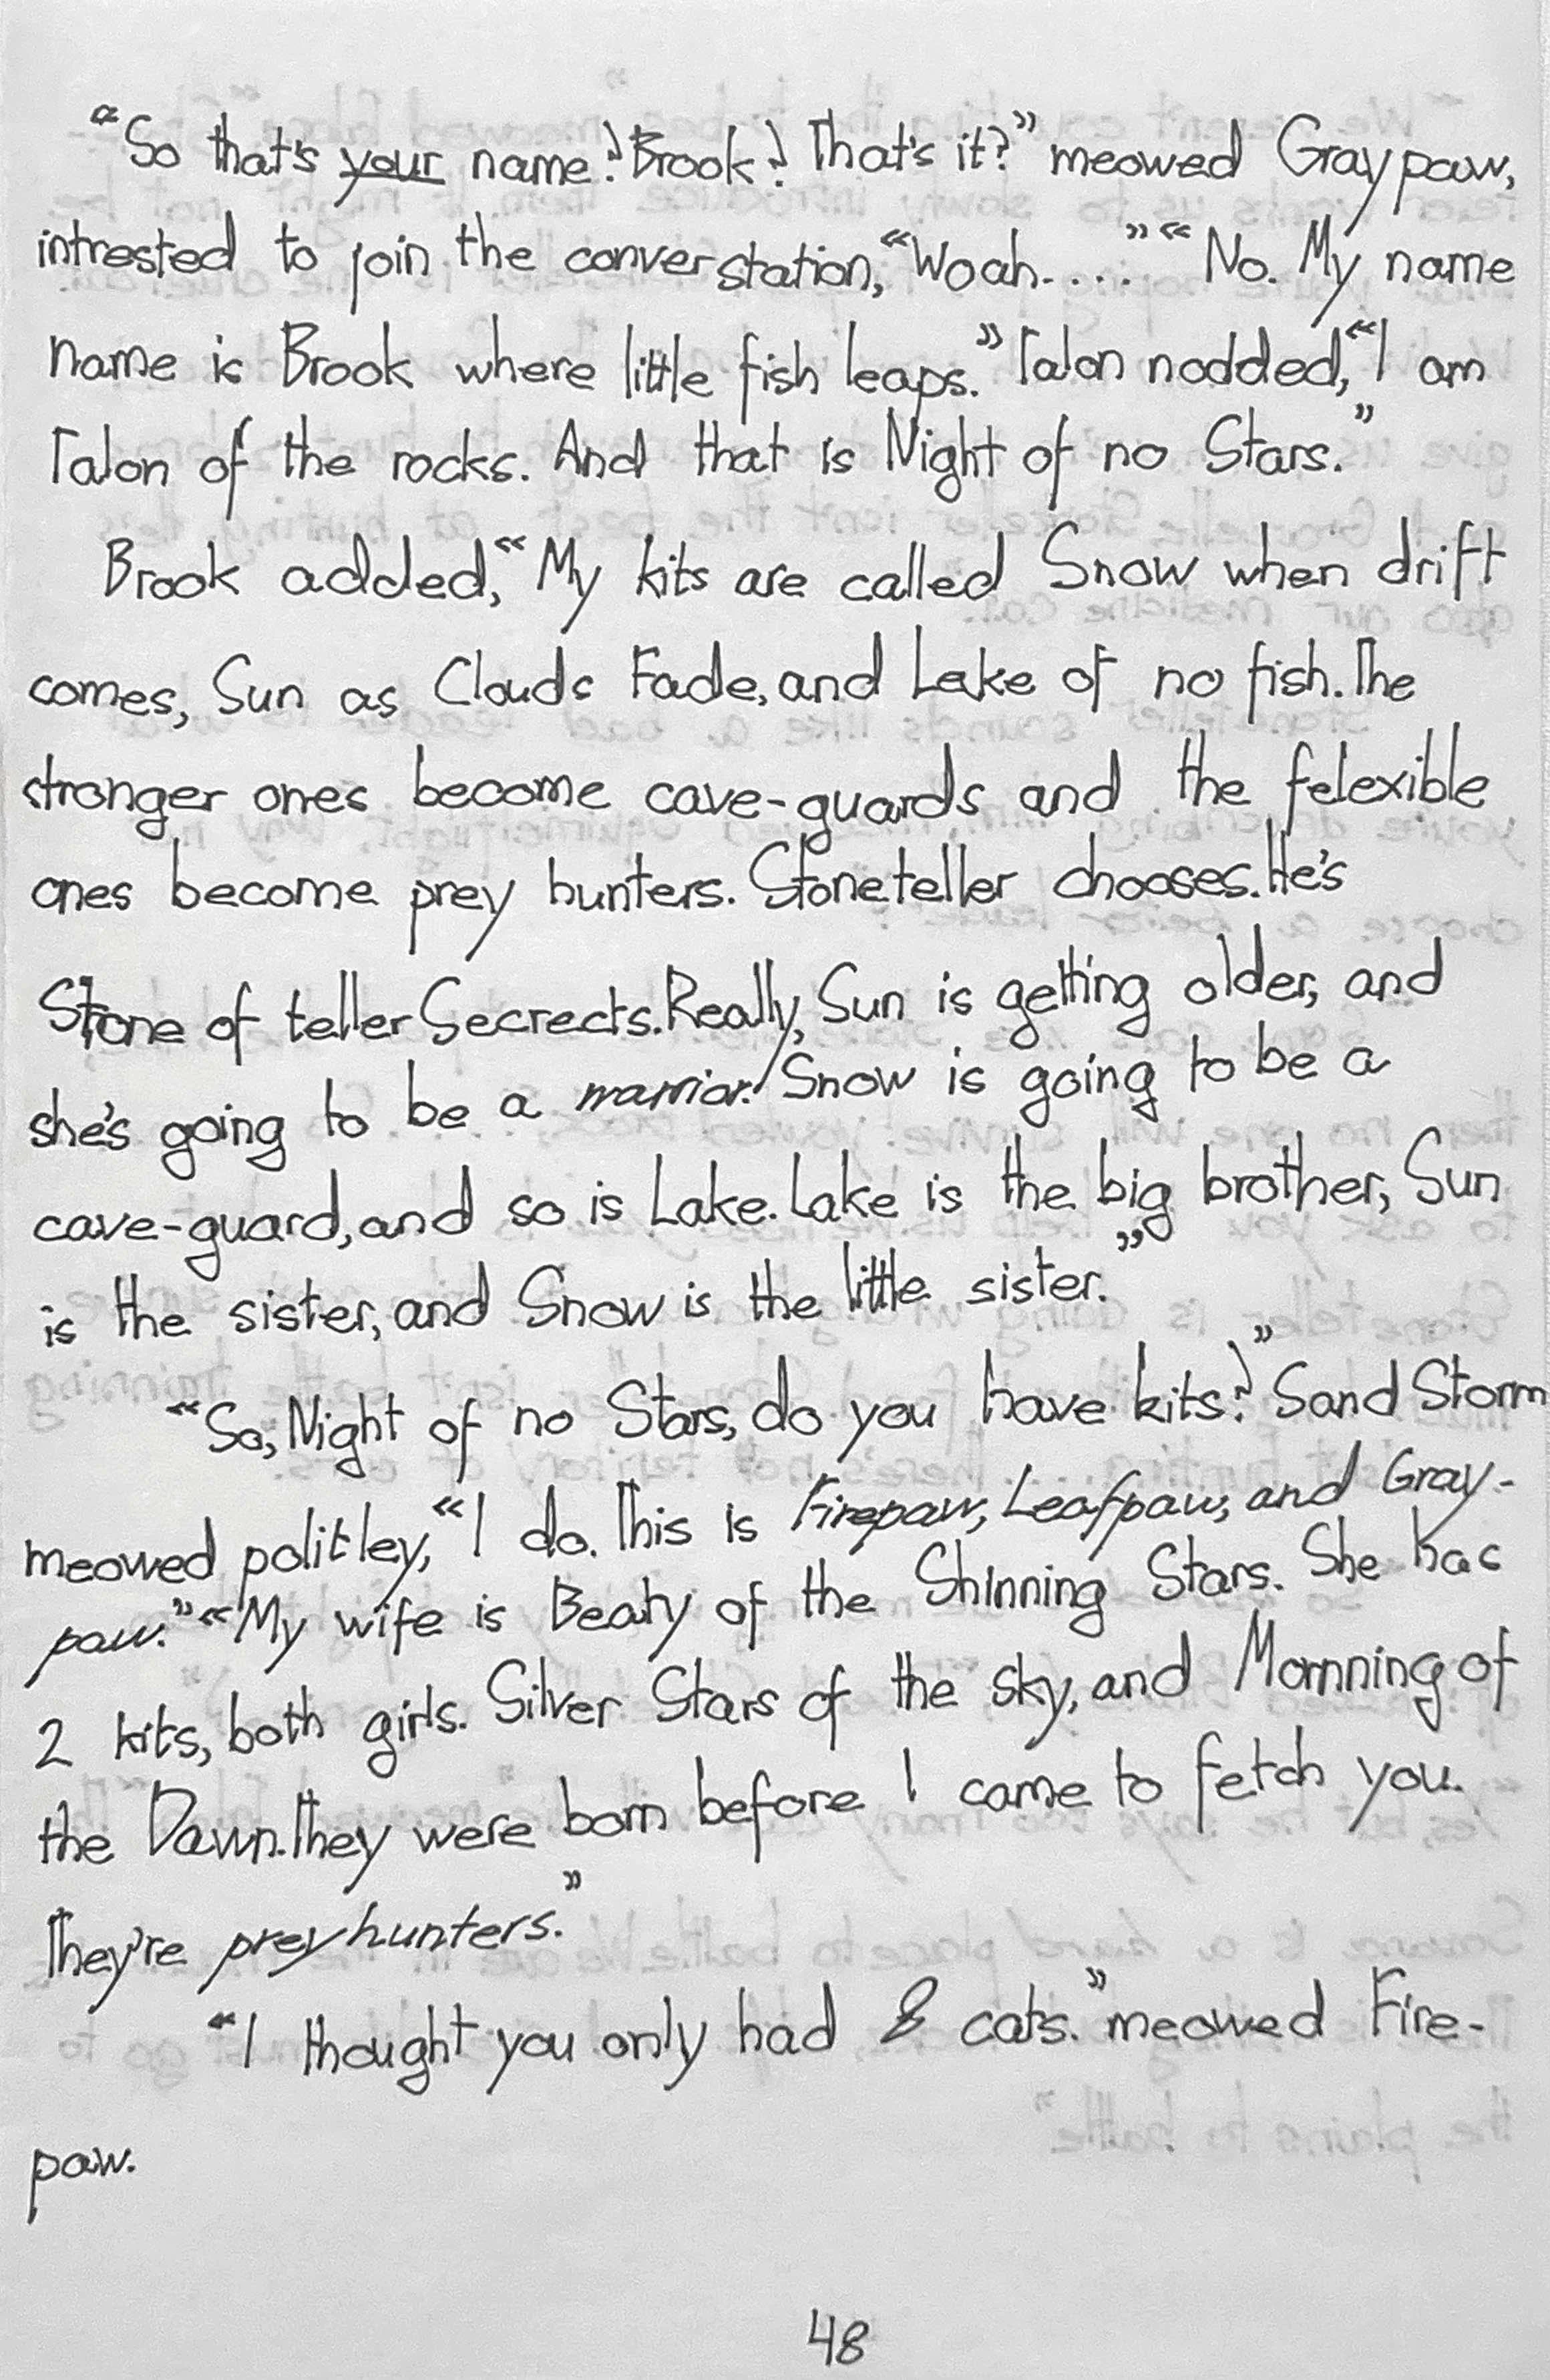 "So that's your name? Brook? That's it?" meowed Graypaw,
intrested to join the converstation, "Woah...." "No. My name
name is Brook where little fish leaps." Talon nodded, "I am
Talon of the rocks. And that is Night of no Stars."
Brook added, "My kits are called Snow when drift
comes, Sun as Clouds Fade, and Lake of no fish. The
stronger ones become cave-guards and the felexible
ones become prey hunters. Stoneteller chooses. He's
Stone of teller Secrects. Really, Sun is getting older, and
she's going to be a warrior! Snow is going to be a
cave-guard, and so is Lake. Lake is the big brother, Sun
is the sister, and Snow is the little sister."
"So, Night of no Stars, do you have kits?" Sand Storm
meowed politley, "I do. This is Firepaw, Leafpaw, and Gray-
paw." "My wife is Beaty of the Shinning Stars. She has
2 kits, both girls. Silver Stars of the sky, and Mornning of
the Dawn. They were born before I came to fetch you.
They're prey hunters."
"I thought you only had 8 cats." meowed Fire-
paw.
48